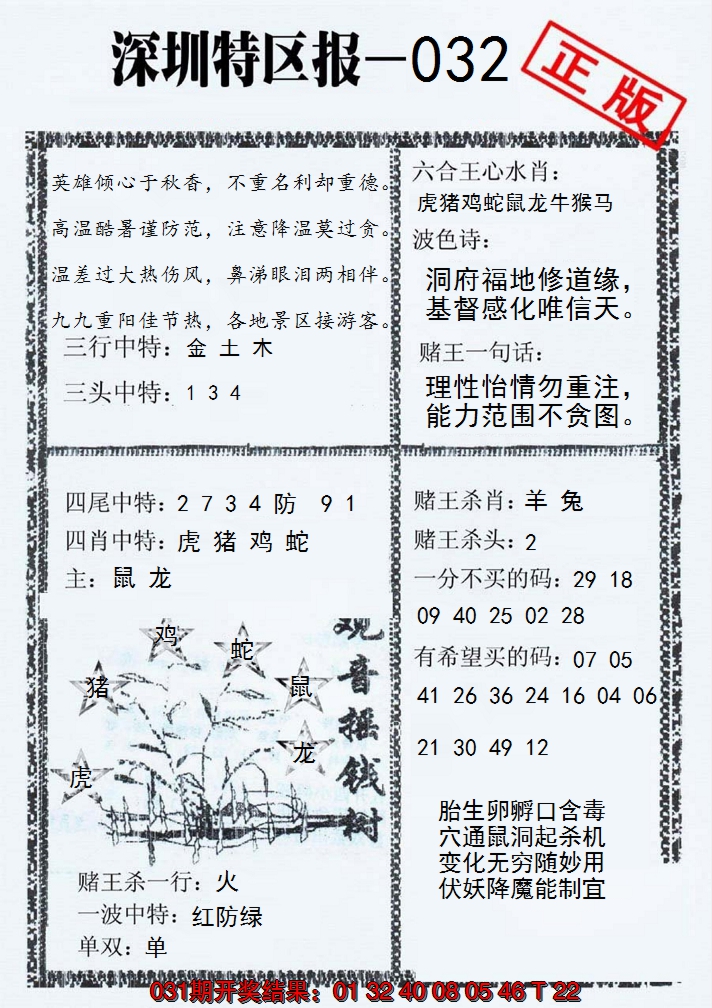 深圳特区报—032
正版
英雄倾心于秋香，不重名利却重德。
高温酷暑谨防范，注意降温莫过贪。
温差过大热伤风，鼻涕眼泪两相伴。
九九重阳佳节热，各地景区接游客。
三行中特：金 土 木
三头中特：1 3 4
六合王心水肖：
虎猪鸡蛇鼠龙牛猴马
波色诗：
洞府福地修道缘，
基督感化唯信天。
赌王一句话：
理性怡情勿重注，
能力范围不贪图。
四尾中特：2 7 3 4 防 9 1
四肖中特：虎 猪 鸡 蛇
主：鼠 龙
鸡
蛇
猪
鼠
龙
虎
观音摇钱树
赌王杀一行：火
一波中特：红防绿
单双：单
赌王杀肖：羊 兔
赌王杀头：2
一分不买的码：29 18
09 40 25 02 28
有希望买的码：07 05
41 26 36 24 16 04 06
21 30 49 12
胎生卵孵口含毒
穴通鼠洞起杀机
变化无穷随妙用
伏妖降魔能制宜
031期开奖结果：01 32 40 08 05 46 T 22